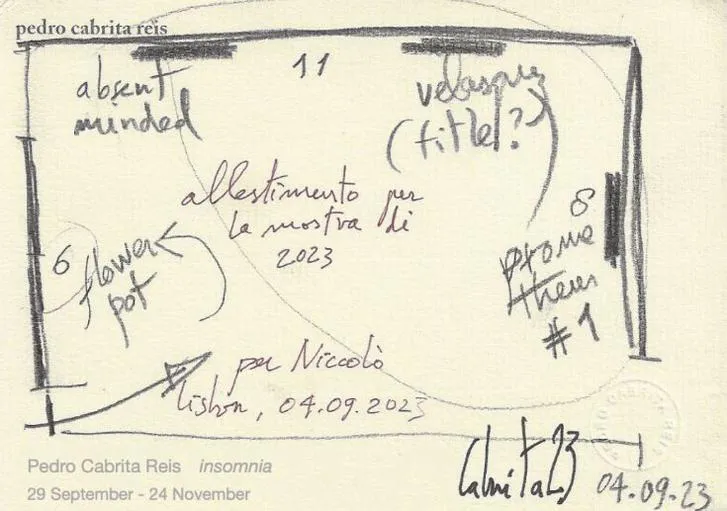 pedro cabrita reis
11
absent
minded
velasquez
(title?)
allestimento per
la mostra di
2023
8
Prome
theus
#1
6
flower
pot
per Niccolò
lisbon, 04.09.2023
Pedro Cabrita Reis insomnia
29 September - 24 November
04.09.23